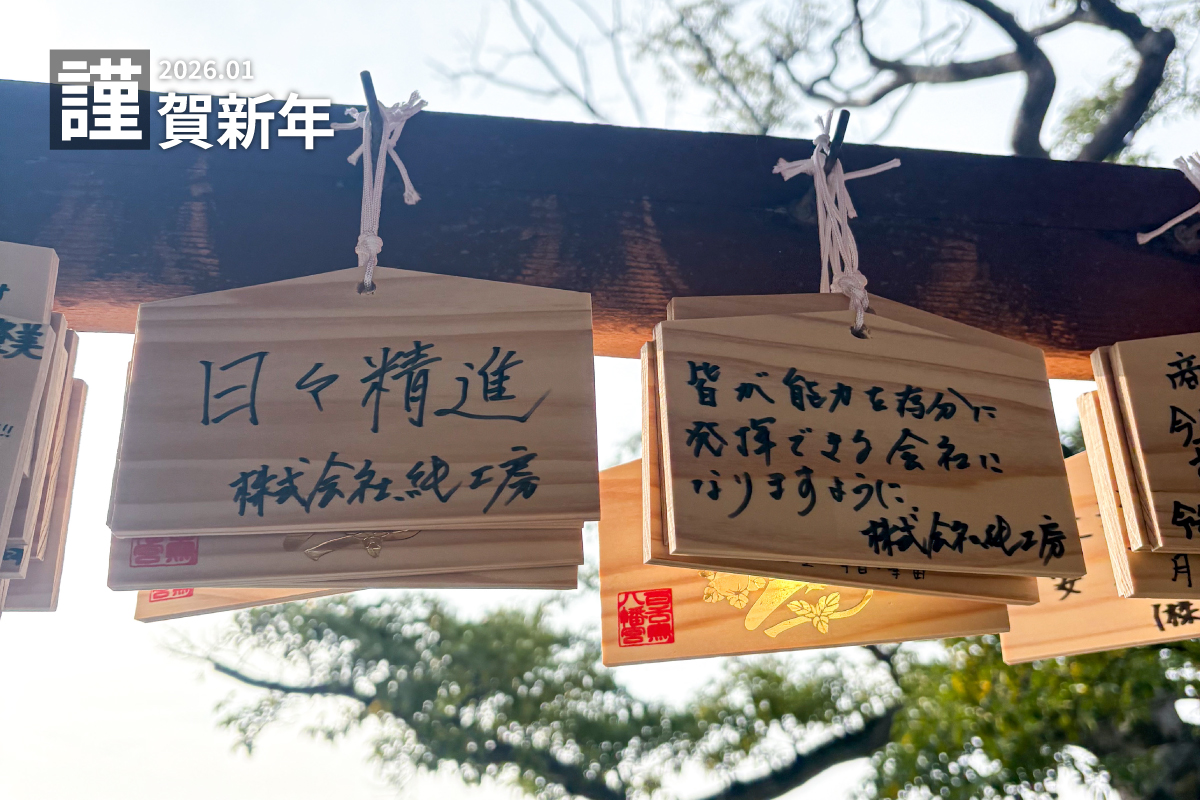 2026.01
謹賀新年
日々精進
株式会社純工房
皆が能力を存分に
発揮できる会社に
なりますように
株式会社純工房
八幡宮